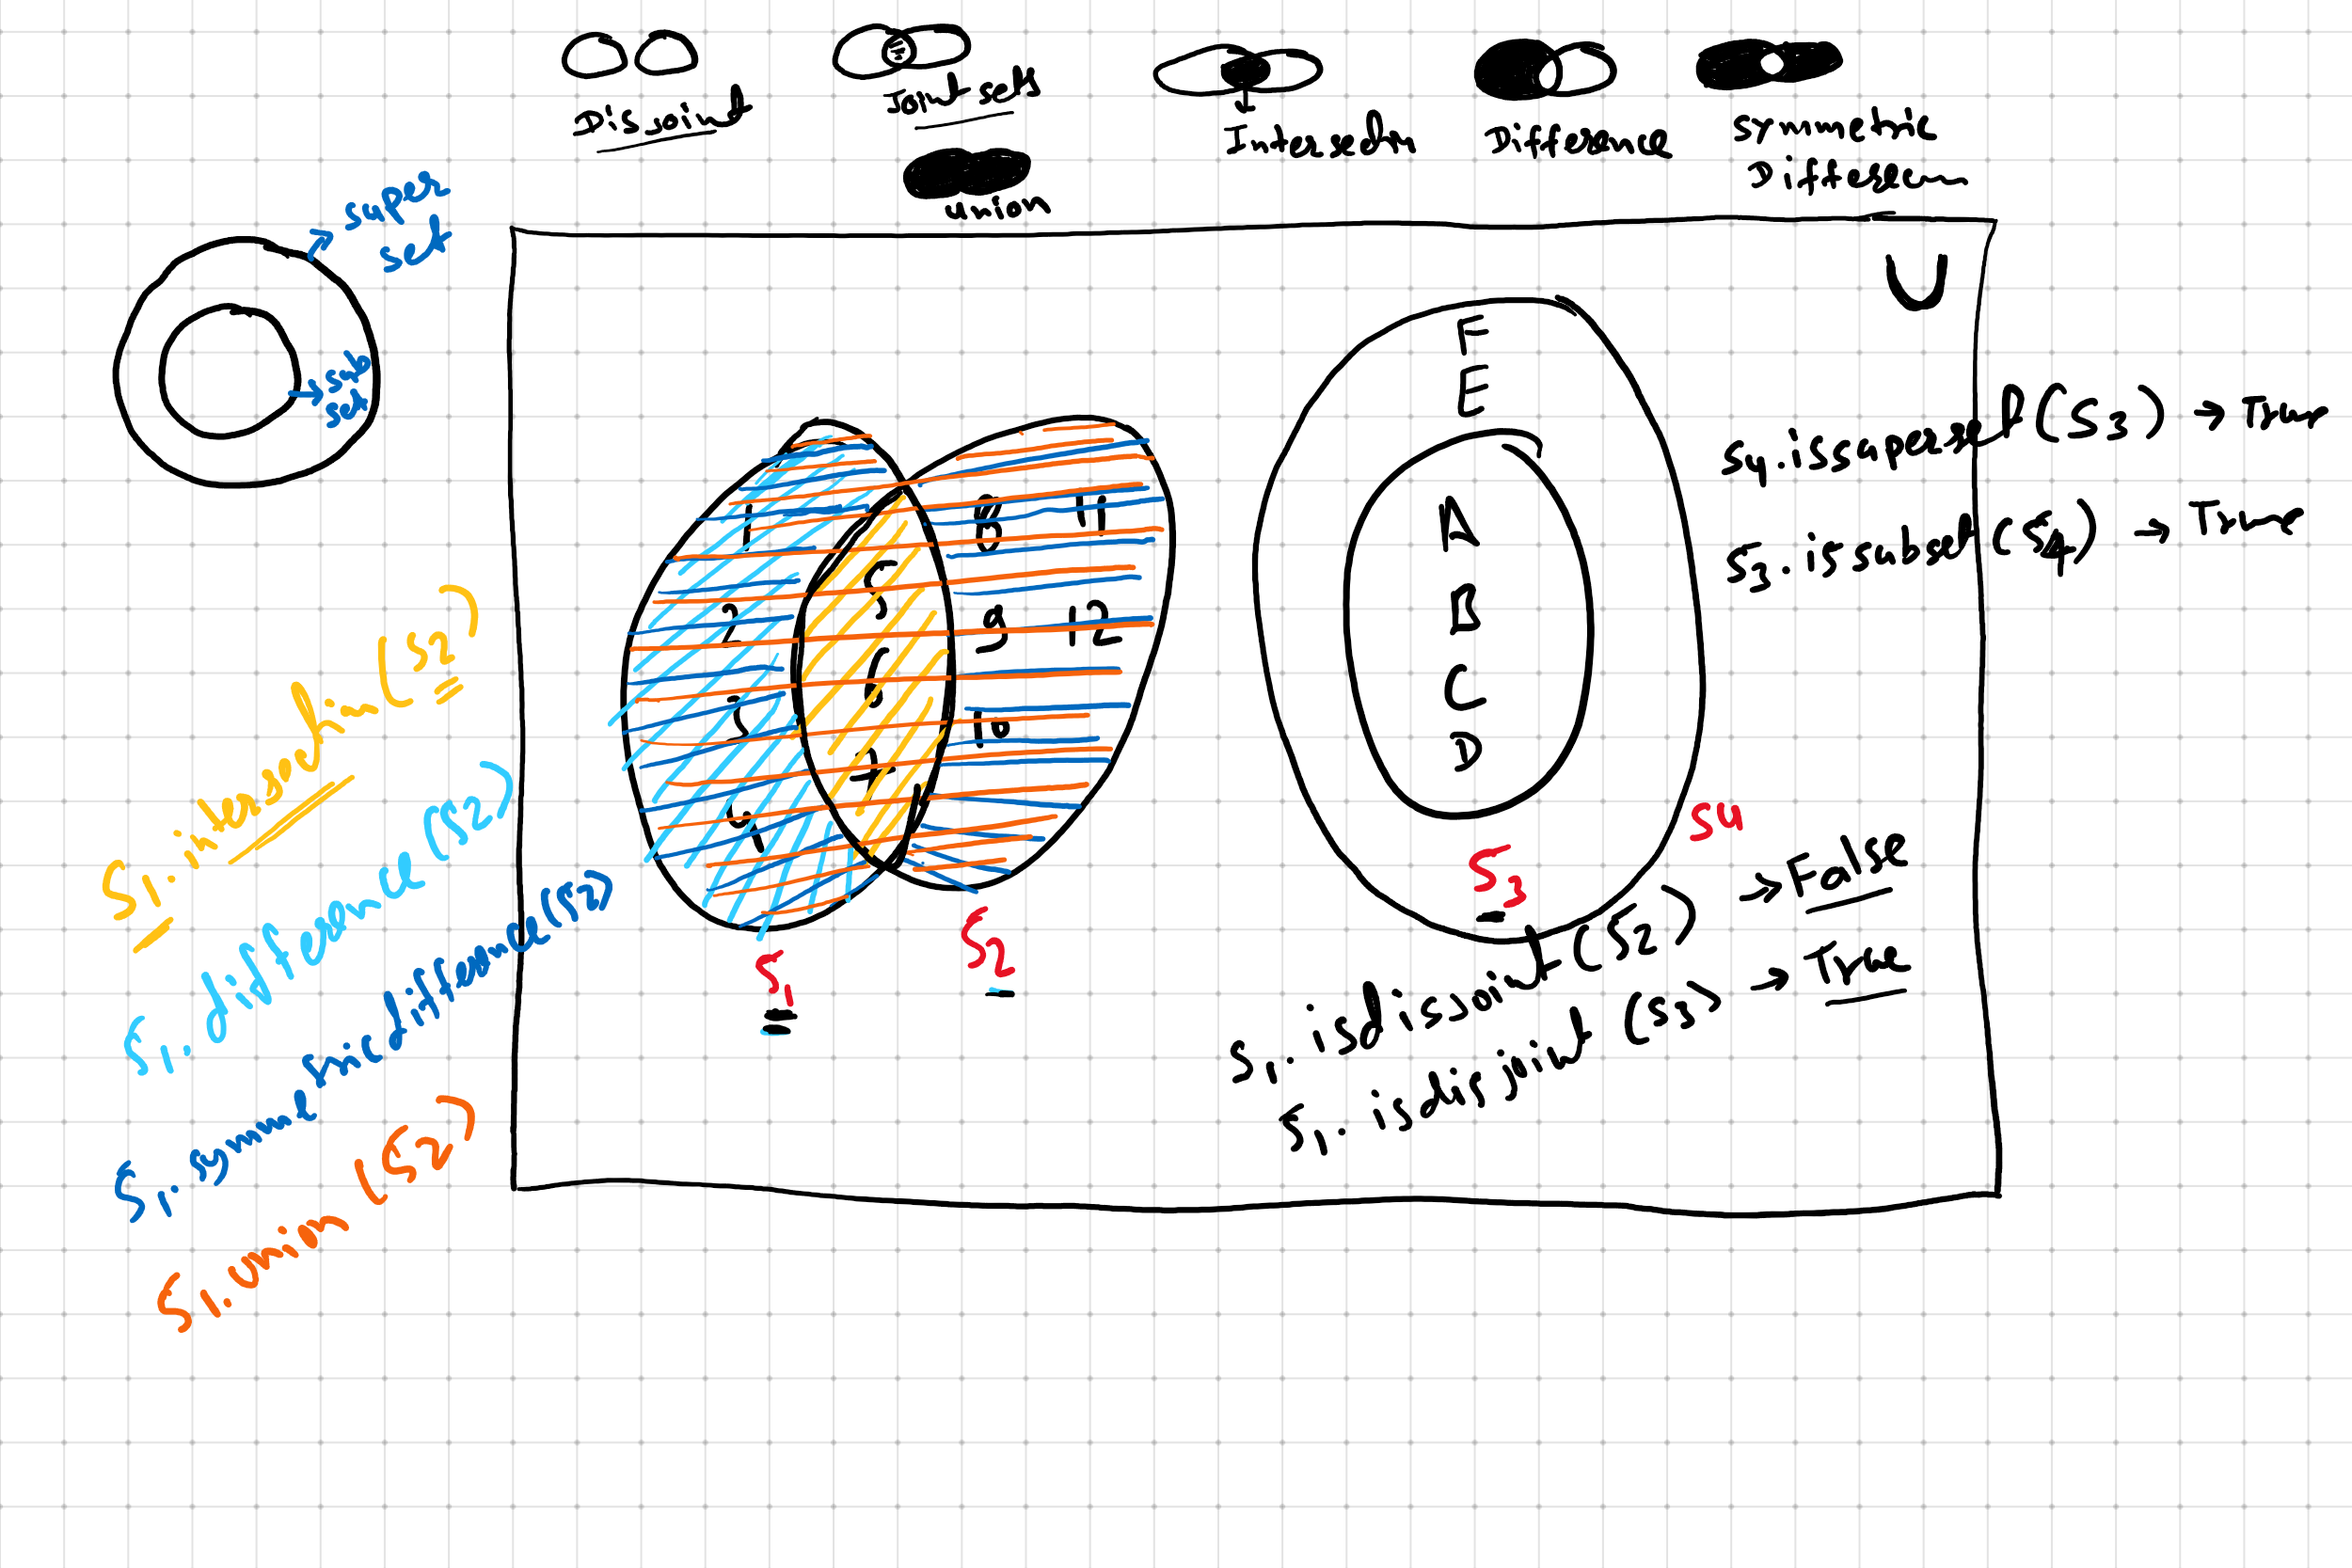 Disjoint
Joint sets
Intersectn
Difference
Symmetric
Differen
union
super
set
sub
set
U
F
E
A
B
C
D
1
2
3
4
5
6
7
8
9
10
11
12
S1
S2
S3
S4
S4.issuperset(S3) → True
S3.issubset(S4) → True
S1.isdisjoint(S2) → False
S1.isdisjoint(S3) → True
S1.intersectn(S2)
S1.difference(S2)
S1.union(S2)